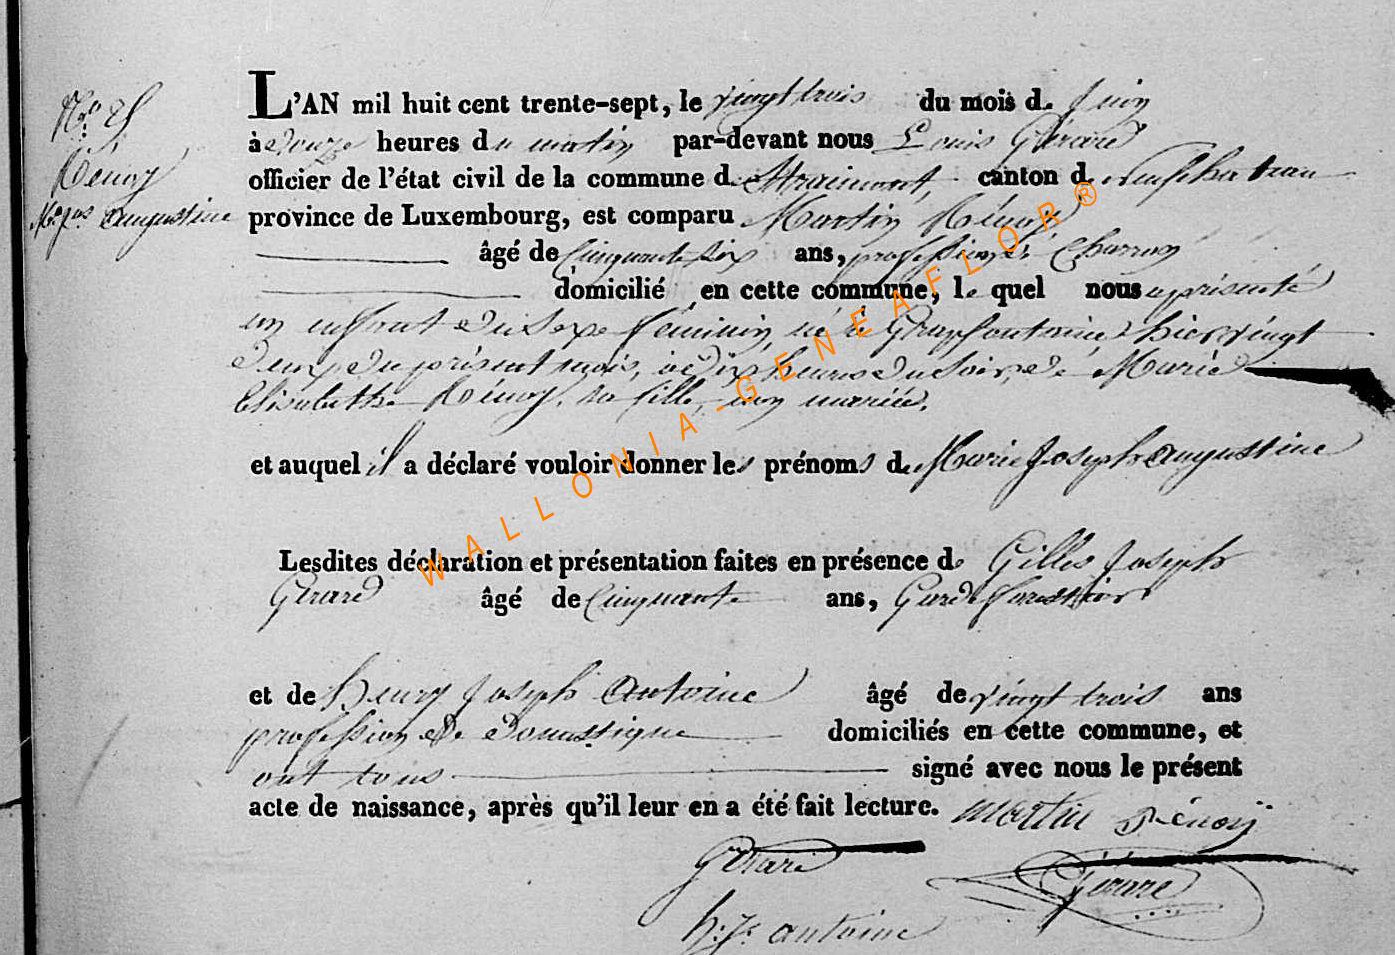 L'AN mil huit cent trente-sept, le vingt trois du mois de juin
à douze heures du matin par-devant nous Louis Gérard
officier de l'état civil de la commune de Straimont, canton de neufchateau
province de Luxembourg, est comparu Martin
âgé de Cinquante six ans, profession de Charron
domicilié en cette commune, le quel nous a présenté
un enfant du sexe féminin, né à Grapfontaine hier vingt
deux du présent mois, à dix heures du soir, de Marie
Elisabethe sa fille, non mariée,
et auquel il a déclaré vouloir donner les prénoms de Marie Joseph augustine
Lesdites déclaration et présentation faites en présence de Gilles Joseph
Gérard âgé de Cinquante ans, Garde forestier
et de henry Joseph Antoine âgé de vingt trois ans
profession de domestique domiciliés en cette commune, et
ont tous signé avec nous le présent
acte de naissance, après qu'il leur en a été fait lecture. Martin
Gérard Gérard
h: J: antoine
augustine
WALLONIA-GENEAFLOR®